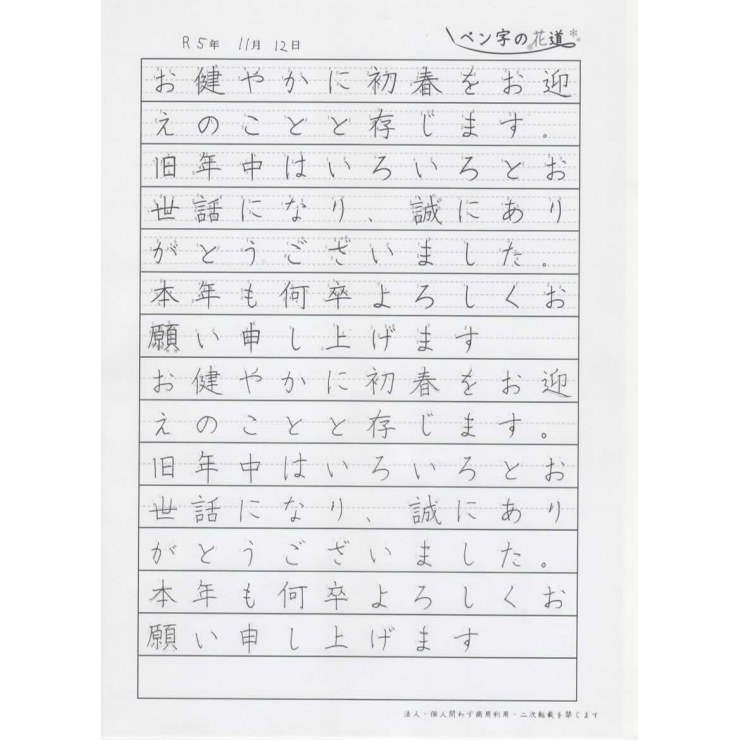 R5年 11月 12日
ペン字の花道
お健やかに初春をお迎
えのことと存じます。
旧年中はいろいろとお
世話になり、誠にあり
がとうございました。
本年も何卒よろしくお
願い申し上げます
お健やかに初春をお迎
えのことと存じます。
旧年中はいろいろとお
世話になり、誠にあり
がとうございました。
本年も何卒よろしくお
願い申し上げます
法人・個人問わず商用利用・二次転載を禁じます